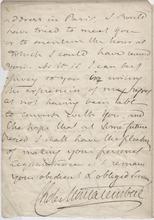 address in Paris. I would
have tried to meet you
or to mention the hour at
which I could have found
you. As it is I can but
convey to you in writing
the expression of my regret
at not having been able
to converse with you, and
the hope that at some future
period I shall have the pleasure
of making your personal
acquaintance. I remain
your obedient & obliged Servant
Ch. de Montalembert